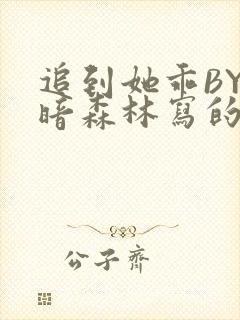 追到她乖BY
暗森林寫的
公子齊